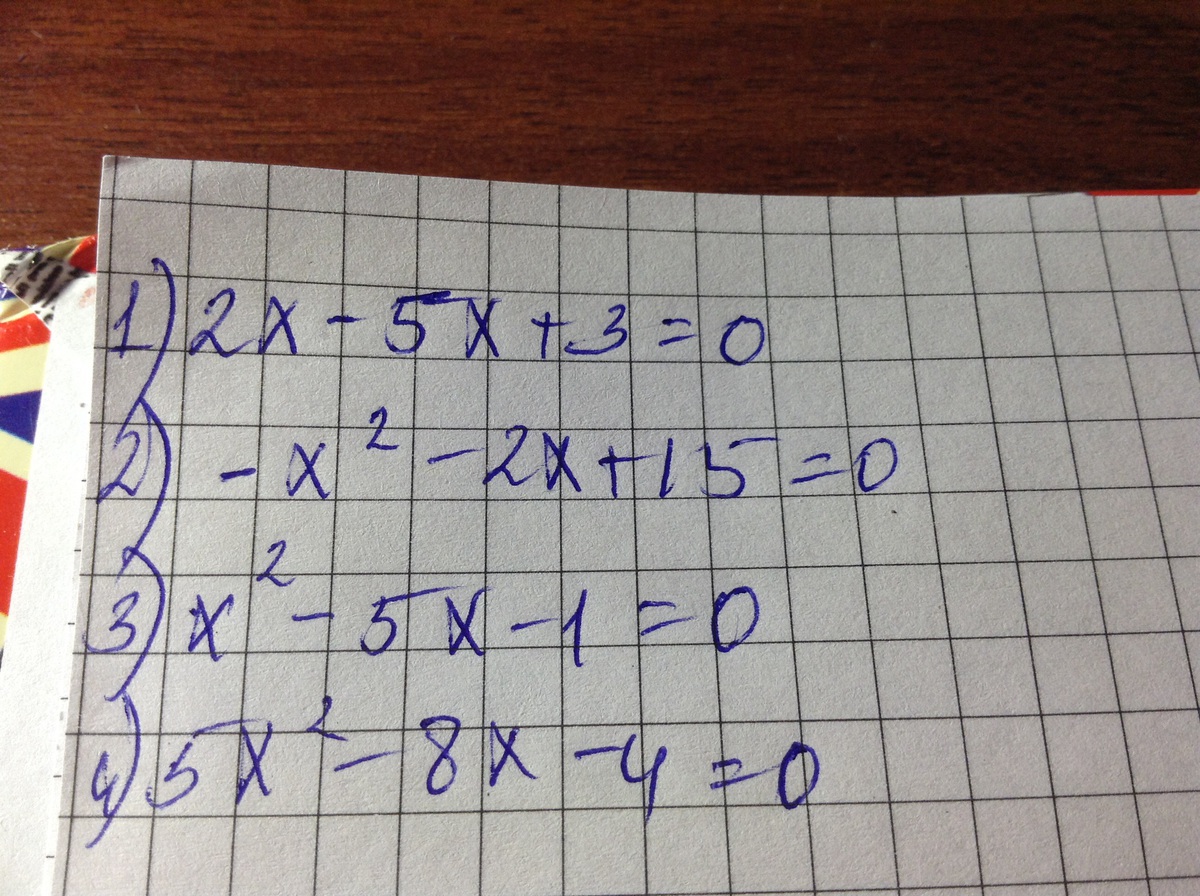 1) 2x - 5x + 3 = 0
2) - x² - 2x + 15 = 0
3) x² - 5x - 1 = 0
4) 5x² - 8x - 4 = 0